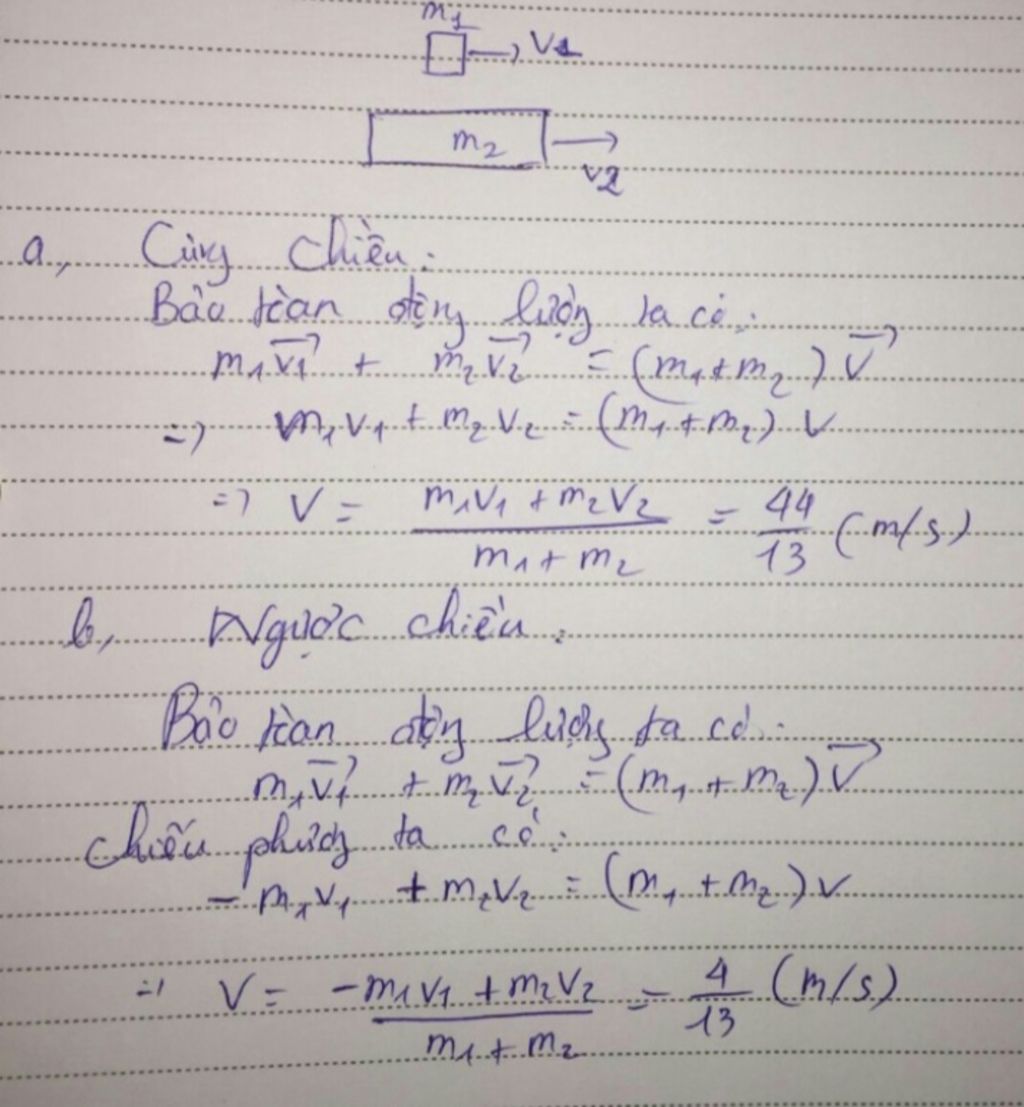 m₁
v₁
m₂
v₂
a, Cùng chiều:
Bảo toàn động lượng ta có:
m₁v₁⃗ + m₂v₂⃗ = (m₁+m₂)v⃗
=> m₁v₁ + m₂v₂ = (m₁+m₂) v
=> V = (m₁v₁ + m₂v₂)/(m₁+m₂) = 44/13 (m/s)
b, Ngược chiều:
Bảo toàn động lượng ta có:
m₁v₁⃗ + m₂v₂⃗ = (m₁+m₂)v⃗
Chiếu phương ta có:
- m₁v₁ + m₂v₂ = (m₁+m₂)v
=> V = (-m₁v₁ + m₂v₂)/(m₁+m₂) = 4/13 (m/s)